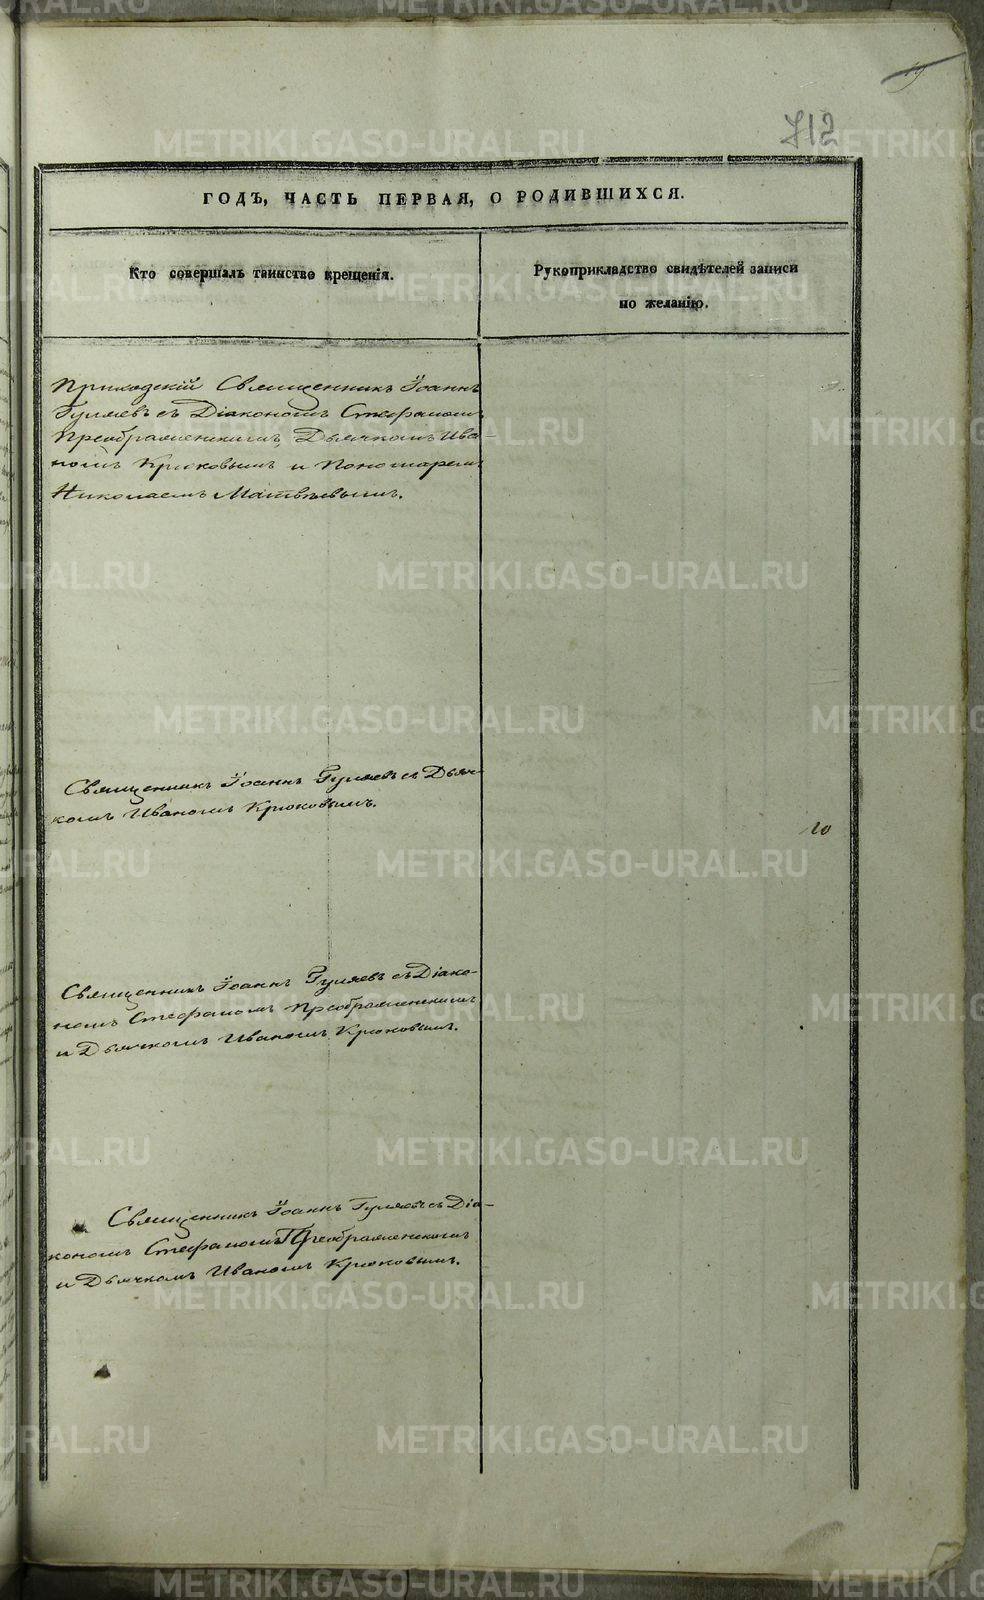 19
712
ГОДЪ, ЧАСТЬ ПЕРВАЯ, О РОДИВШИХСЯ.
Кто совершалъ таинство крещенія.
Рукоприкладство свидѣтелей записи
по желанію.
Приходскій Священникъ Іоаннъ
Гуляевъ съ Діакономъ Стефаномъ
Преображенскимъ, Дьячкомъ Ива-
номъ Крюковымъ и Пономаремъ
Николаемъ Матвѣевымъ.
Священникъ Іоаннъ Гуляевъ съ Дьяч-
комъ Иваномъ Крюковымъ.
10
Священникъ Іоаннъ Гуляевъ съ Діако-
номъ Стефаномъ Преображенскимъ
и Дьячкомъ Иваномъ Крюковымъ.
Священникъ Іоаннъ Гуляевъ съ Діа-
кономъ Стефаномъ Преображенскимъ
и Дьячкомъ Иваномъ Крюковымъ.
METRIKI.GASO-URAL.RU